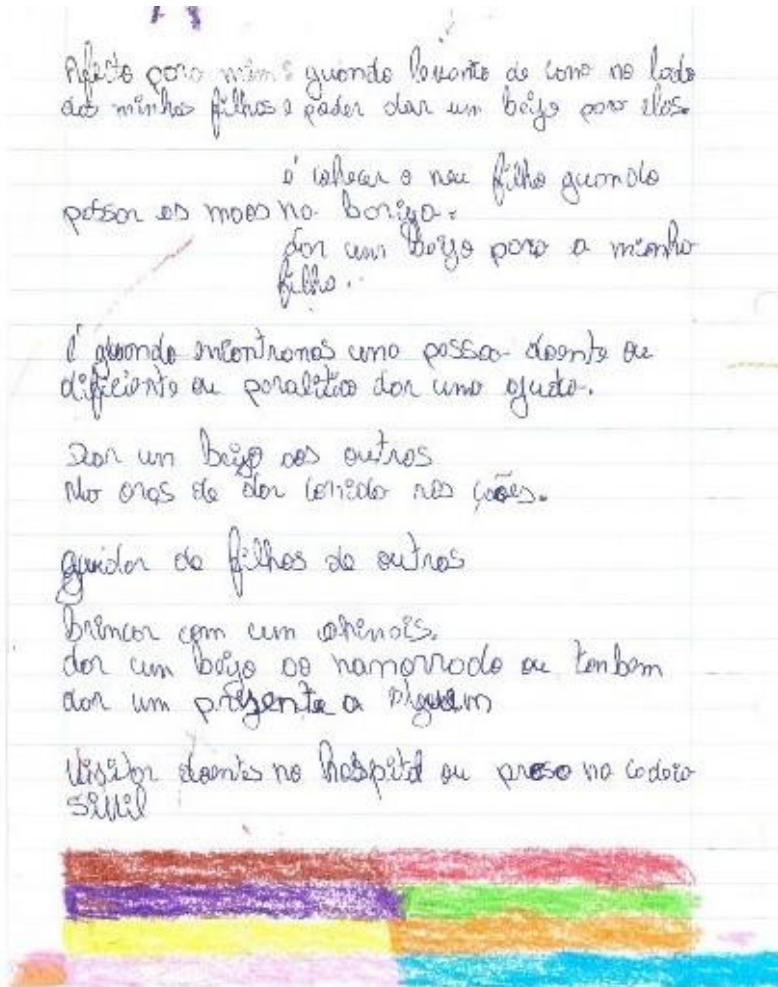 Afeto para mim é quando levanto de cama no lado
dos minhas filhos e poder dar um beijo para elos.
é conhecer o meu filho quando
passar as maos na bariga.
dar um beijo para a minha
filha.
é quando encontramos uma pessoa doente ou
dificiente ou paralitico dar uma ajuda.
Dar um beijo aos outros
Na oras de dar comida nos cães.
filhos de outros
brincar com um animais.
dar um beijo ao namorrado ou tenbem
dar um presente a alguem
Visitor doentes no hospital ou preso na cadeia
sivil